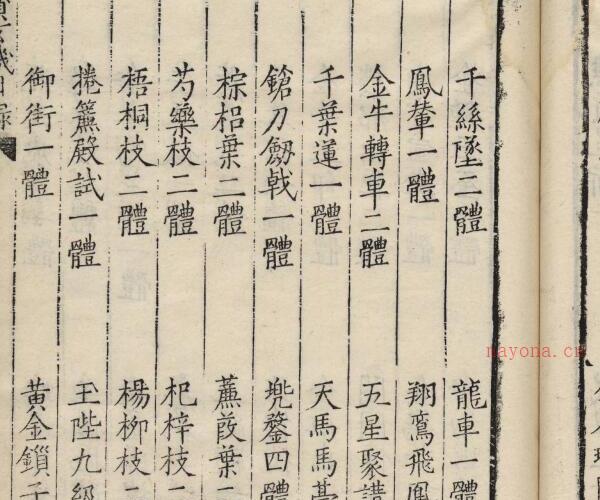 千絲墜二體　龍車一體
鳳輦一體　翔鸞飛鳳
金牛轉車二體　五星聚講
千葉蓮一體　天馬馬臺
鎗刀劒戟一體　兠鍪四體
棕梠葉二體　蕉葮葉二
芍藥枝二體　杞梓枝二
梧桐枝二體　楊柳枝二
捲簾殿試一體　玉陛九級
御街一體　黃金鎖子
nayona.cn